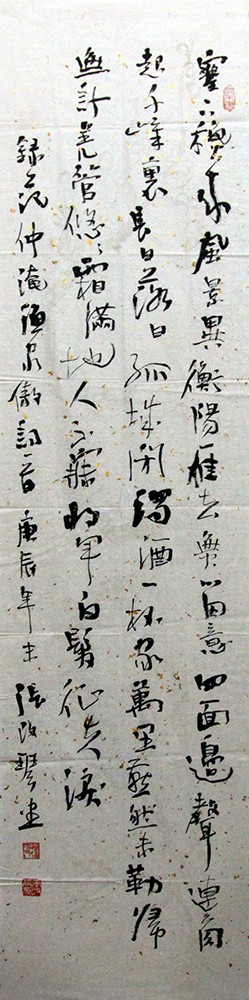 塞下秋来風景異衡陽雁去無留意四面邊聲連角
起千嶂裏長日落日孤城閉濁酒一杯家萬里燕然未勒歸
無計羌管悠々霜滿地人不寐將軍白髮征夫淚
錄范仲淹漁家傲詞一首 庚辰年末 張改琴書